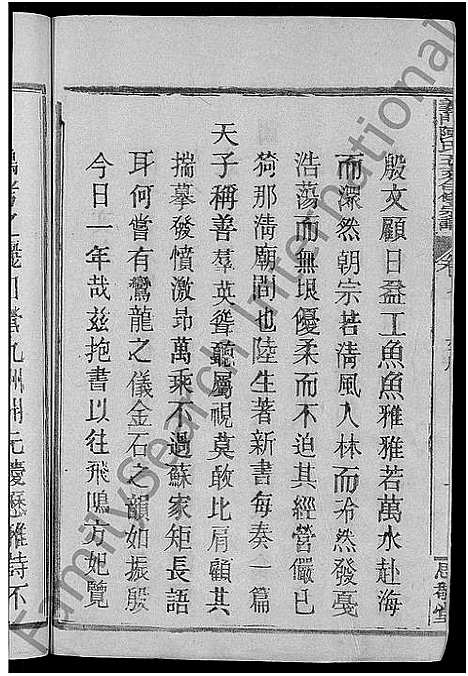 殷文顧日益工魚魚雅雅若萬水赴海
而深然朝宗若淸風人林而冷然發戞
浩蕩而無垠優柔而不迫其經營儼已
猗那淸廟間也陸生著新書每奏一篇
天子稱善羣英聳聽屬視莫敢比肩顧其
揣摹發憤激昂萬乘不過蘇家矩長語
耳何嘗有鸞龍之儀金石之韻如振殷
今日一年哉玆抱書以往飛鳴方妃覽
九州州元慶歷雅詩不
FamilySearch International